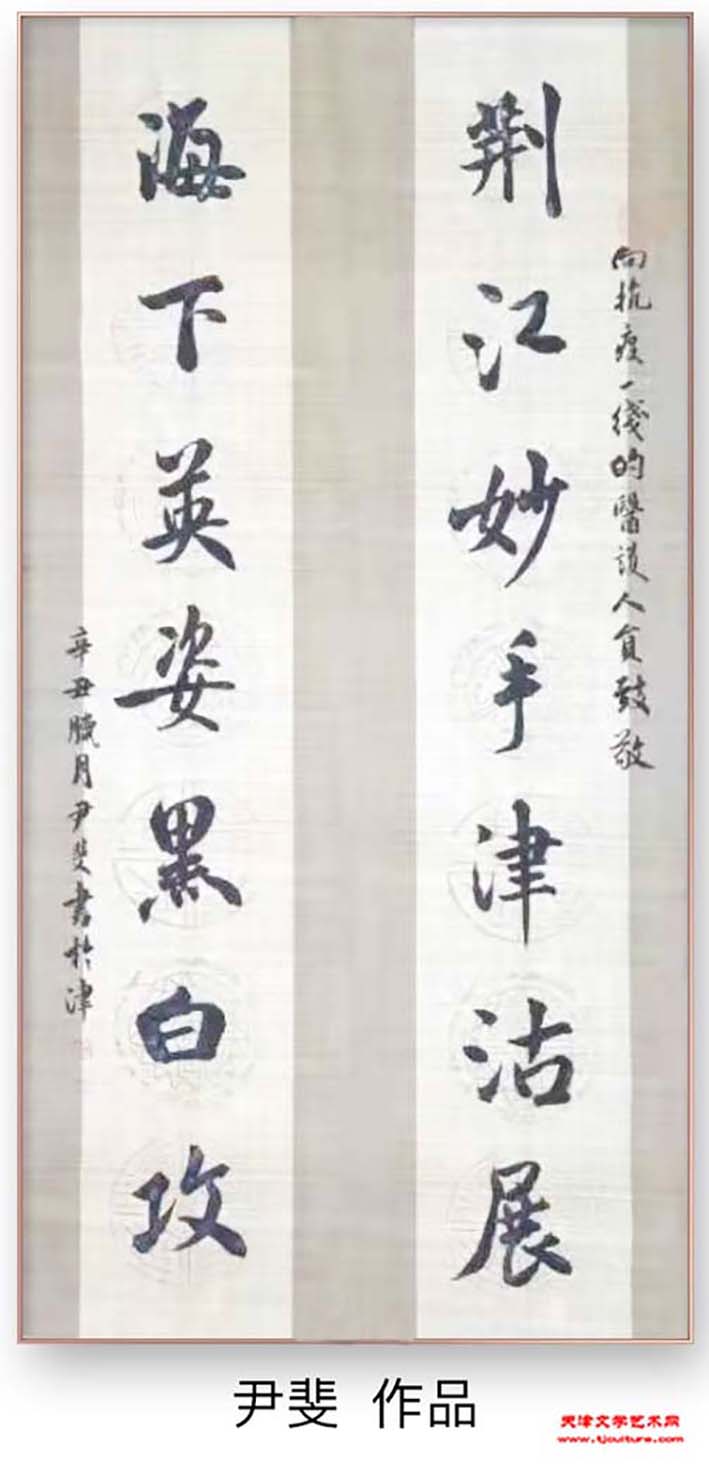 向抗疫一綫的醫護人員致敬
荆江妙手津沽展
海下英姿黑白攻
辛丑臘月尹斐書於津
尹斐 作品
天津文学艺术网
www.tjculture.com